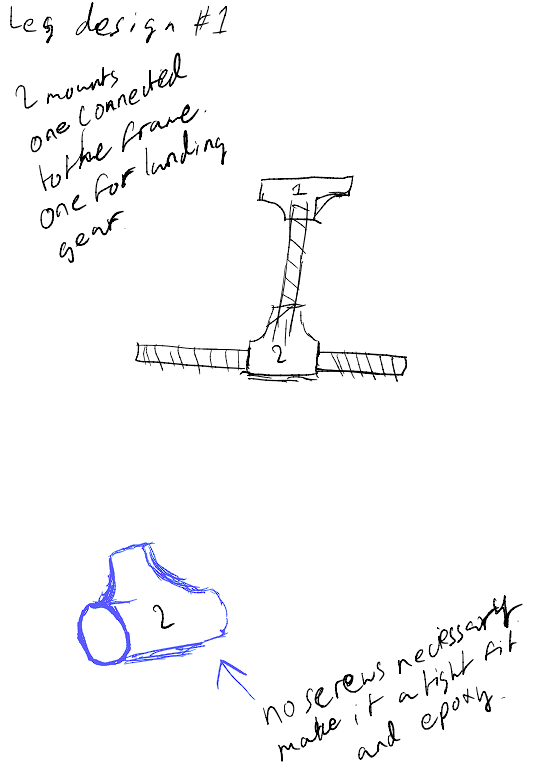 Leg design #1
2 mounts
one connected
to the frame.
one for landing
gear.
1
2
2
no screws necessary.
make it a tight fit
and epoxy.